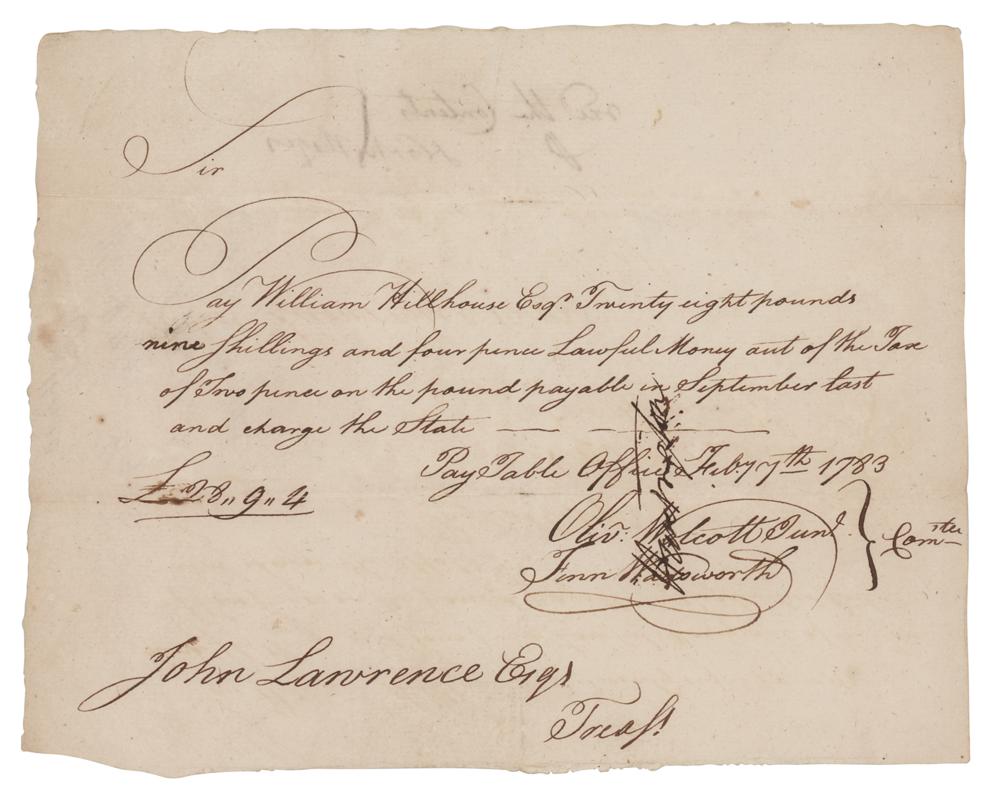 Sir
Pay William Hillhouse Esqr. Twenty eight pounds
nine Shillings and four pence Lawful Money out of the Tax
of Two pence on the pound payable in September last
and charge the State
Pay Table Office Feby 7th 1783
£28,, 9,, 4
Oliv: Wolcott Junr.
Comtee
Fenn Wadsworth
John Lawrence Esqr
Treasr